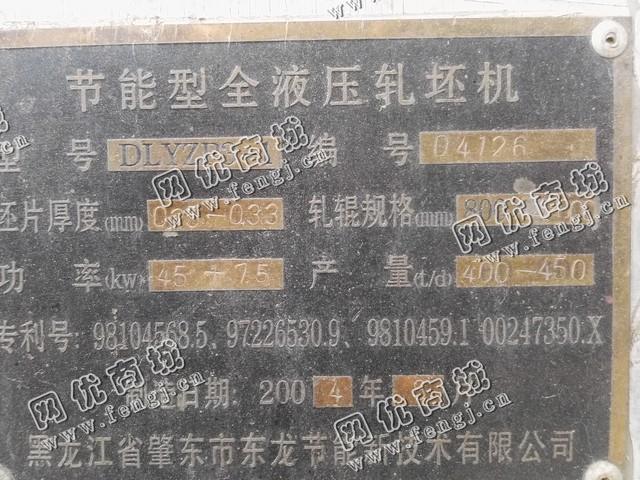 节能型全液压轧坯机
型 号 编 号 04126
坯片厚度(mm) 轧辊规格(mm)
功 率(kw) 45+7.5 产 量(t/d) 400-450
专利号: 98104568.5、97226530.9、9810459.1 00247350.X
制造日期: 2004年 月
黑龙江省肇东市东龙节能新技术有限公司
网优商城
www.fengj.cn
网优商城
www.fengj.cn
网优商城
www.fengj.cn
网优商城
www.fengj.cn